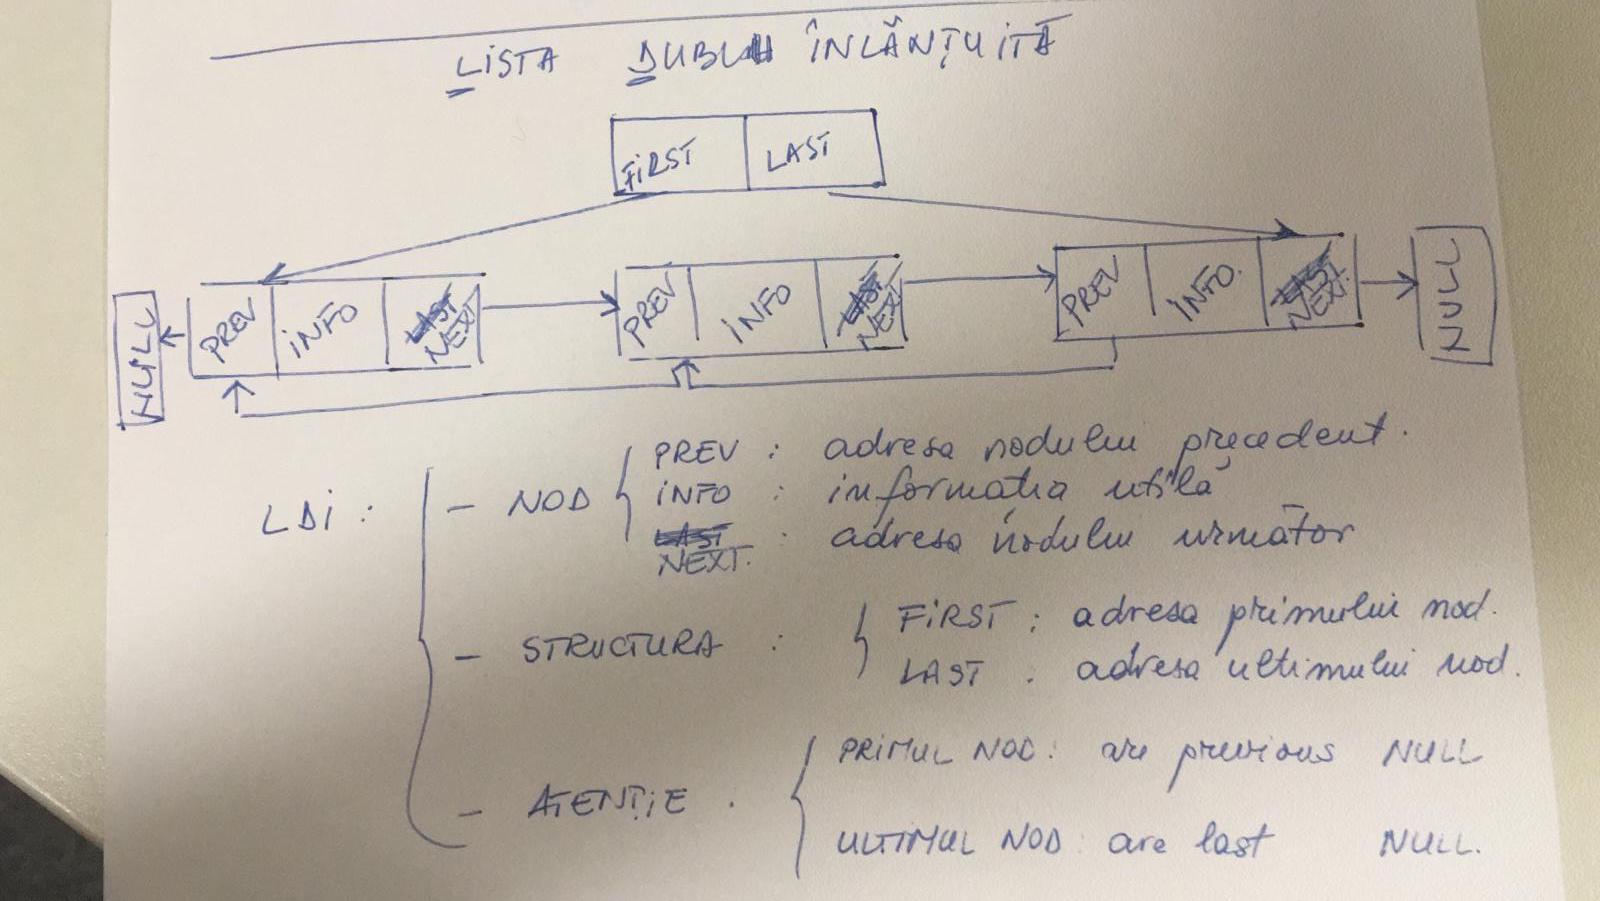 LISTA DUBLU ÎNLĂNȚUITĂ
FIRST LAST
NULL PREV INFO LAST NEXT PREV INFO LAST NEXT PREV INFO. LAST NEXT. NULL
LDI : - NOD PREV : adresa nodului precedent.
INFO : informatia utilă
LAST : adresa nodului următor
NEXT.
- STRUCTURA : FIRST : adresa primului nod.
LAST : adresa ultimului nod.
- ATENȚIE . PRIMUL NOD: are previous NULL
ULTIMUL NOD: are last NULL.